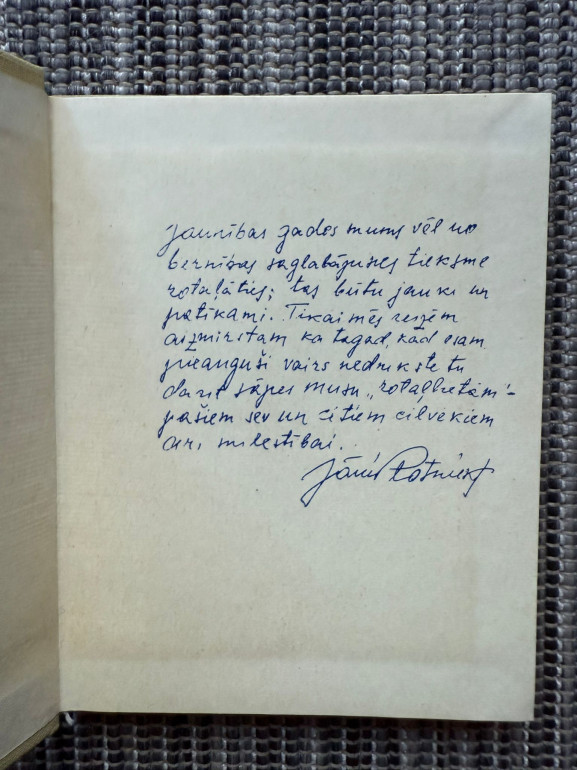 Jaunības gados mums vēl no
bernības saglabājusies tieksme
rotaļāties; tas būtu jauki un
patīkami. Tikai mēs reizēm
aizmirstam ka tagad, kad esam
pieauguši vairs nedrīkstētu
darīt sāpes mūsu „rotaļlietām"-
pašiem sev un citiem cilvēkiem
arī mīlestībai.
Jānis